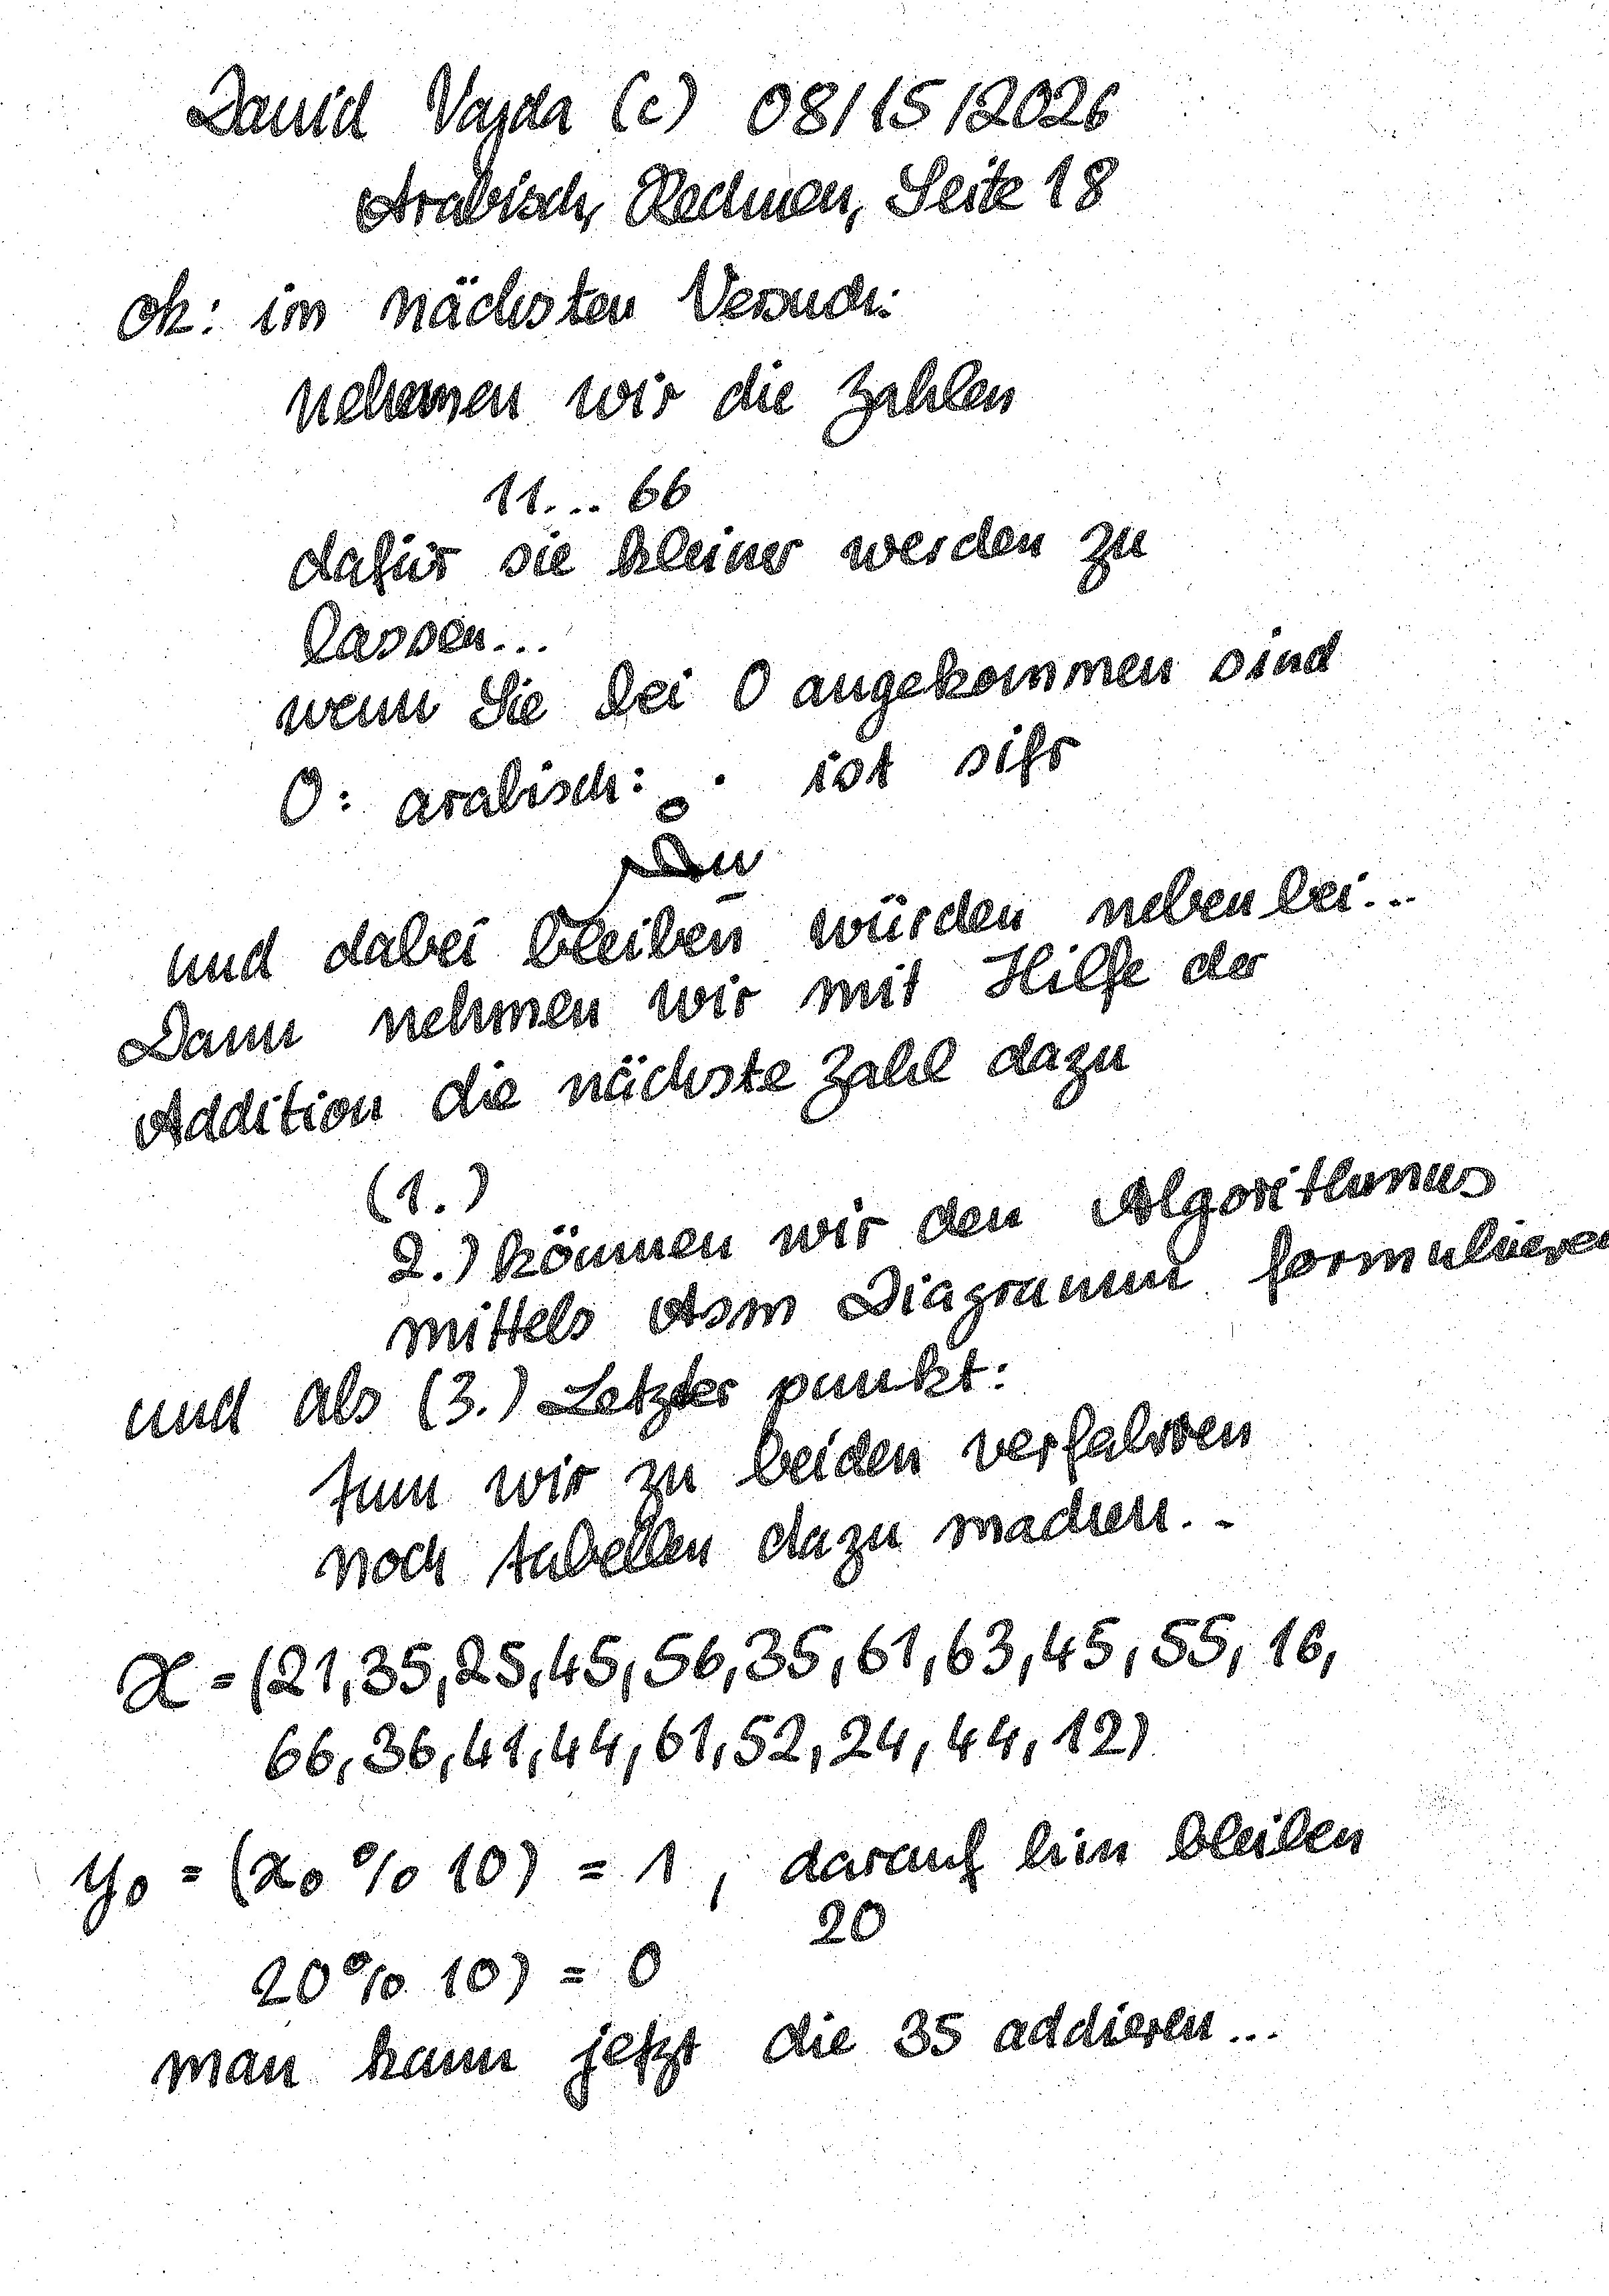 David Vajda (c) 08/15/2026
Arabisch, Rechnen, Seite 18
ok: im nächsten Versuch:
nehmen wir die Zahlen
11... 66
dafür sie kleiner werden zu
lassen...
wenn Sie bei 0 angekommen sind
0: arabisch: · ist sifr
Du
und dabei bleiben würden nebenbei...
Dann nehmen wir mit Hilfe der
Addition die nächste Zahl dazu
(1.)
2.) können wir den Algorithmus
mittels Asm Diagramm formulieren
und als (3.) Letzter punkt:
tun wir zu beiden verfahren
noch tabellen dazu machen..
x = (21,35,25,45,56,35,61,63,45,55,16,
66,36,41,44,61,52,24,44,12)
y₀ = (x₀ % 10) = 1, darauf hin bleiben
20
20 % 10) = 0
man kann jetzt die 35 addieren...